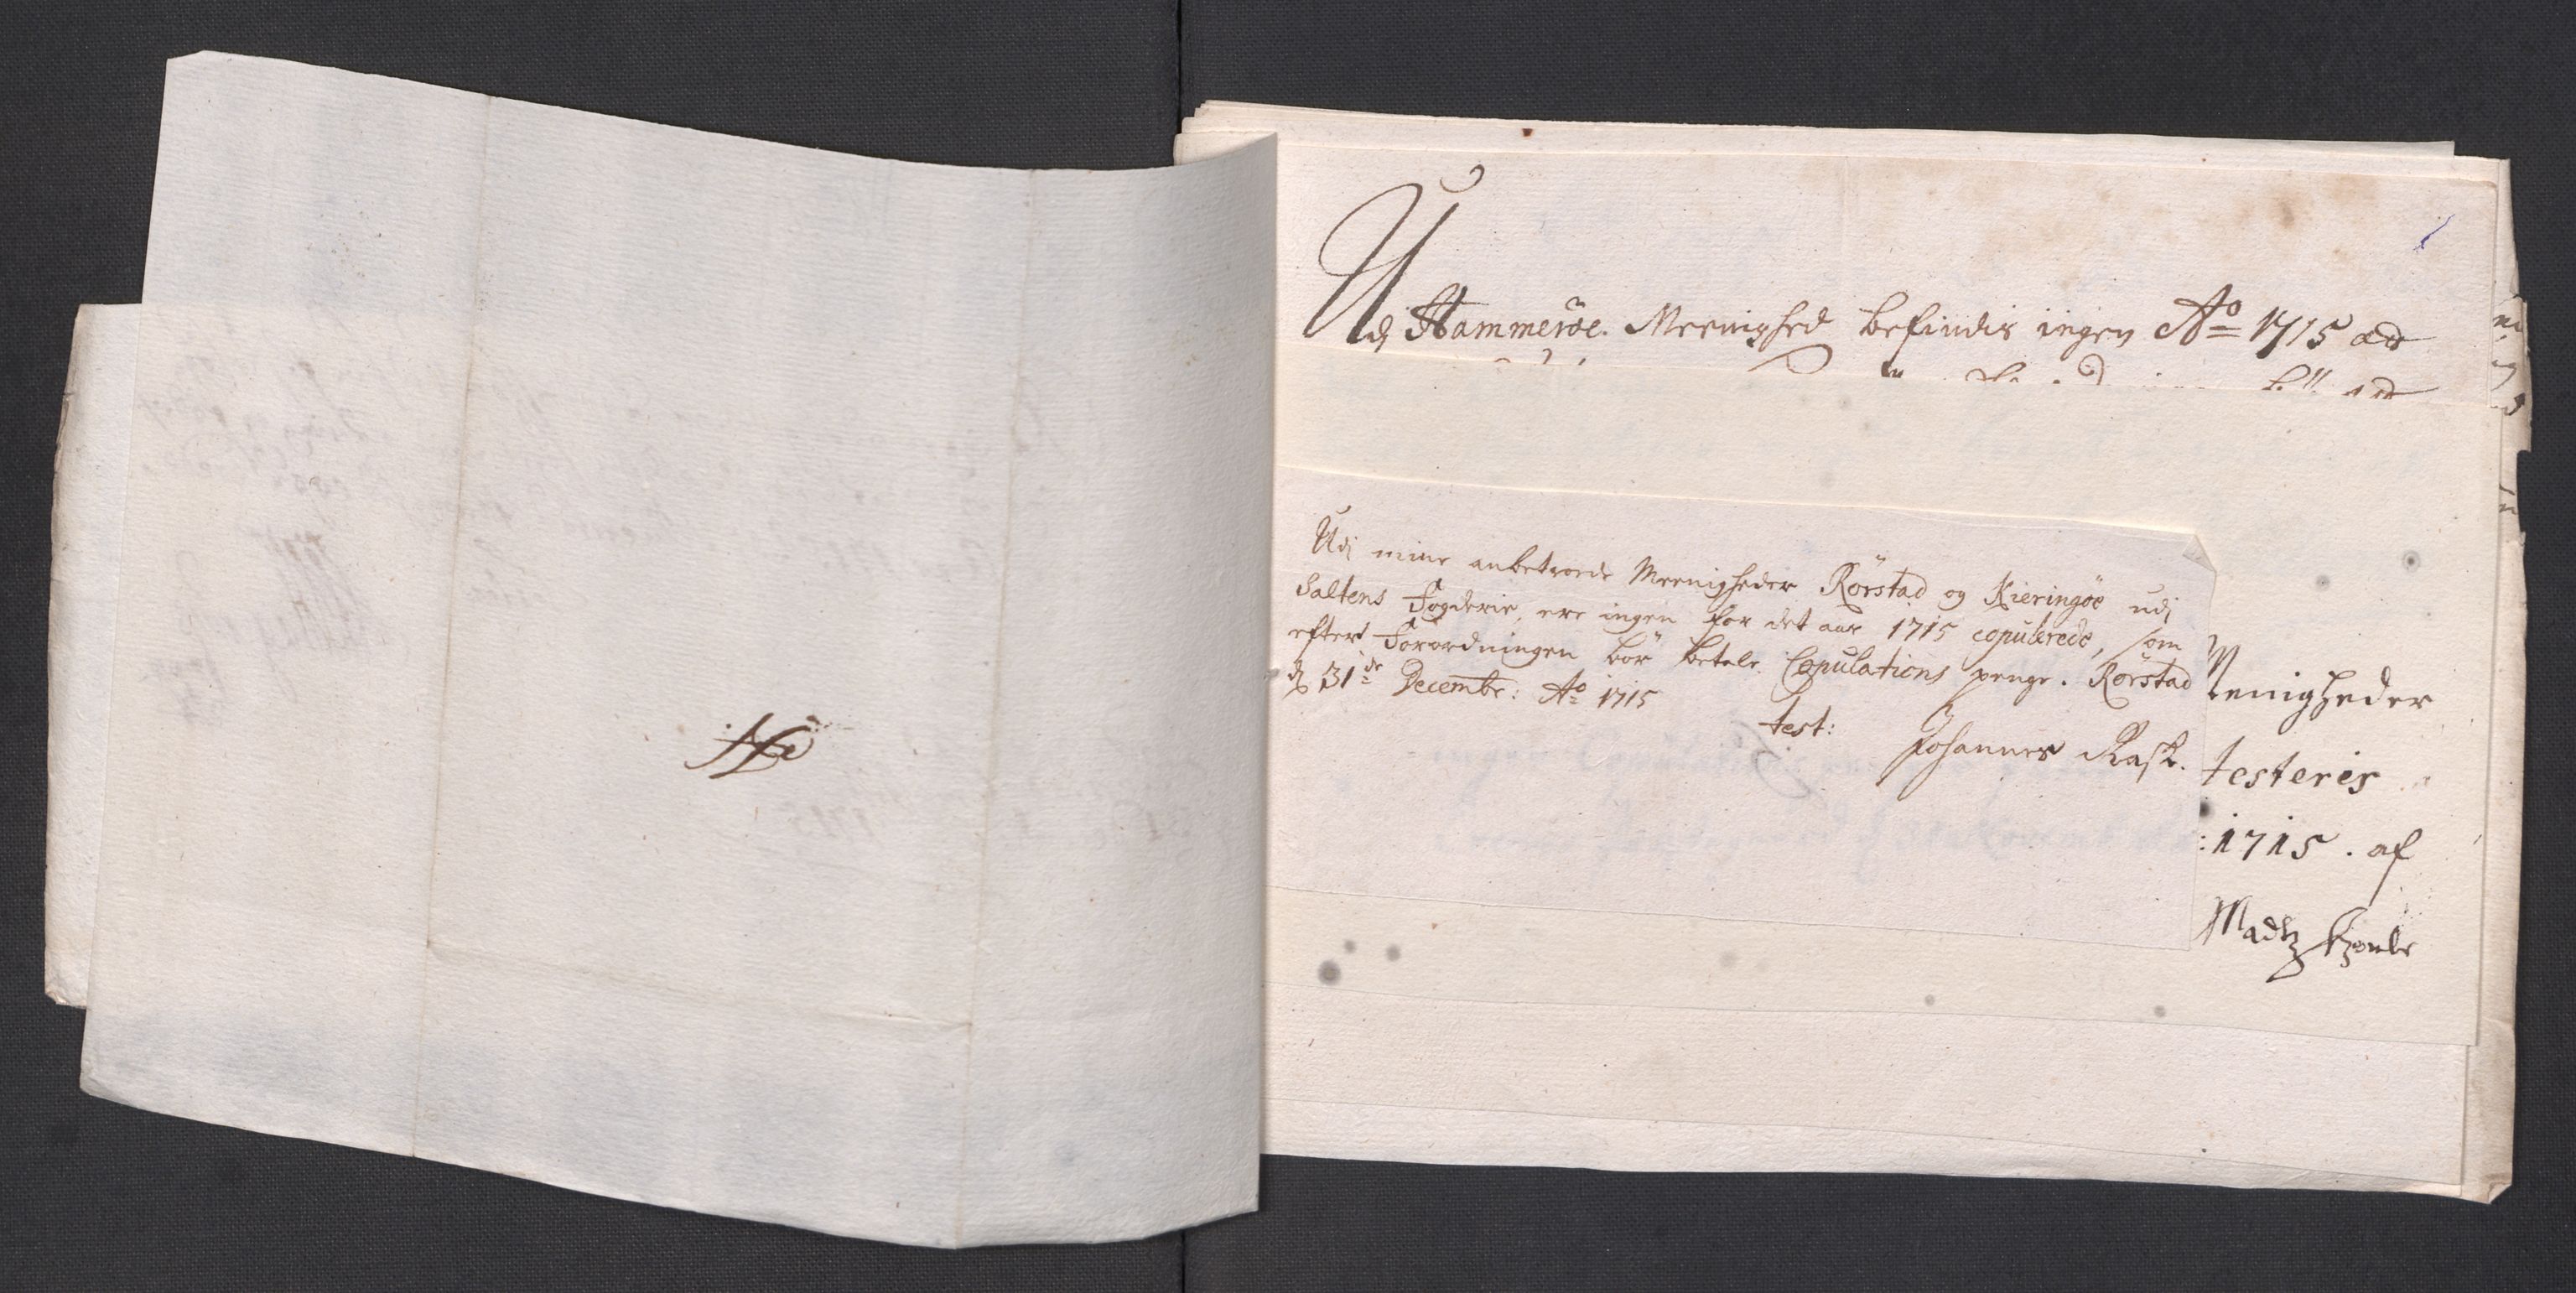 Udj Hammeröe Meenighed befindis ingen Ao 1715 at
Udj mine anbetroede Meenigheder Rörstad og Kieringöe udj
Saltens Fogderie, ere ingen for det aar 1715 copulerede, som
efter Forordningen bör betale Copulations penge. Rörstad
dj 31de Decembr: Ao 1715
test:
Johannes Rask.
Menigheder
testeris
: 1715 . af
Madtz